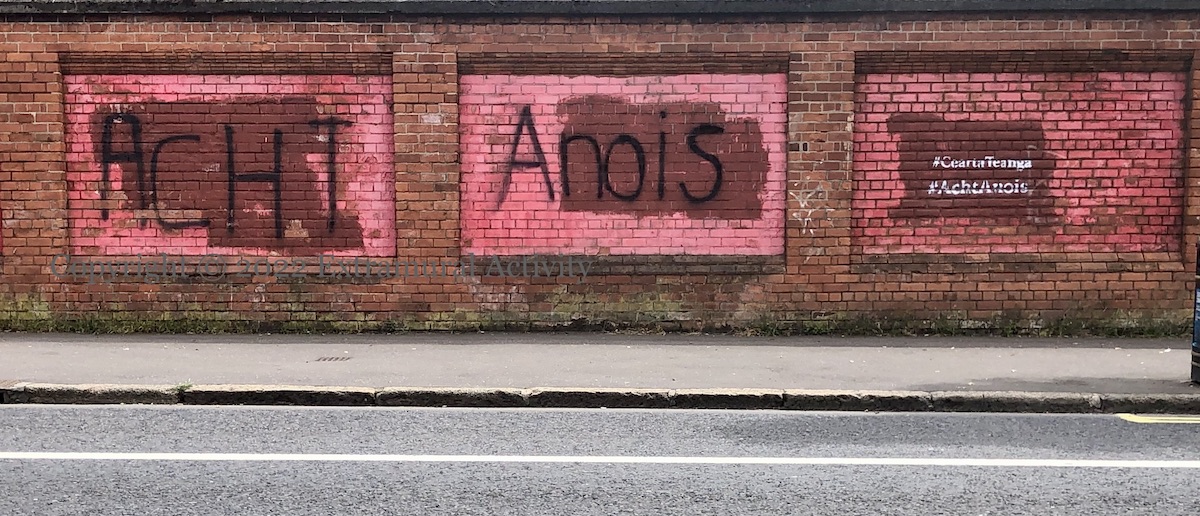 ACHT
Anois
#CeartaTeanga
#AchtAnois
Copyright © 2022 Extramural Activity